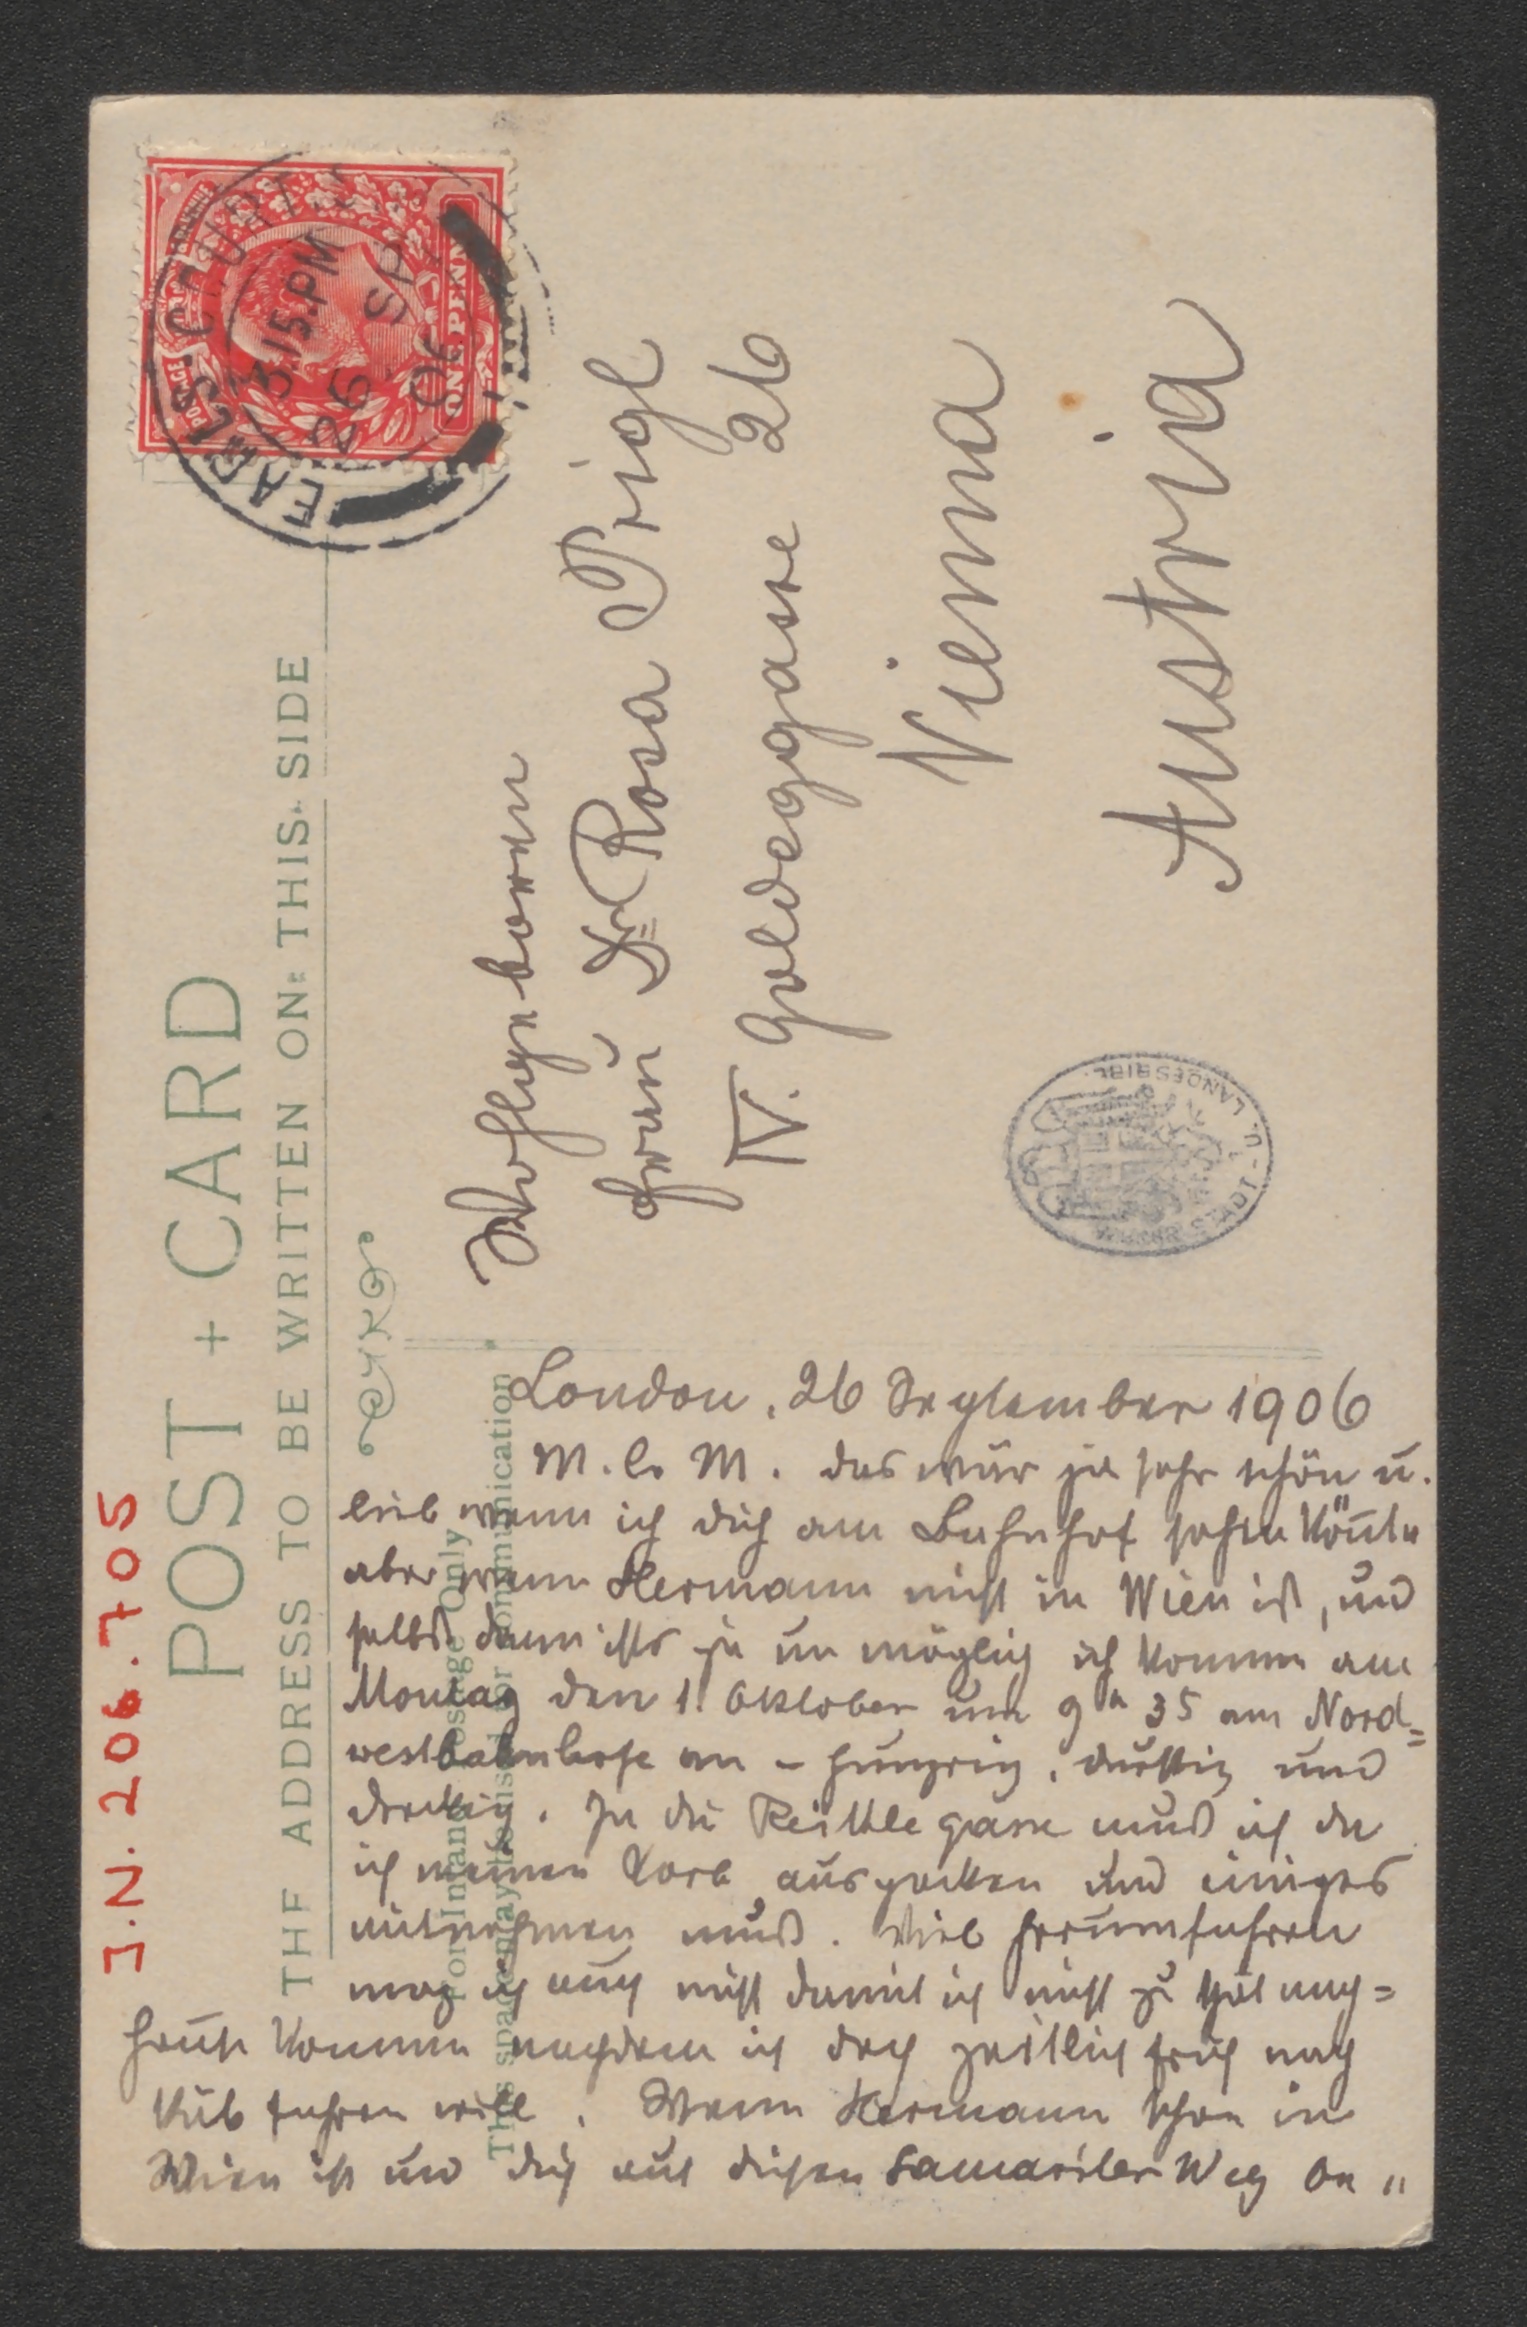 J.N. 206.705
POST + CARD
THE ADDRESS TO BE WRITTEN ON THIS SIDE
For Inland Postage Only
This space may be used for Communication
EARLS COURT
3.15.PM
26 SP
06
POSTAGE
ONE PENNY
Wohlgeboren
Frau Dr Rosa Prigl
IV. Goldeggasse 26
Vienna
Austria
WIENER STADT- U. LANDESBIBL.
London, 26 September 1906
M. l. M. das wär ja sehr schön u.
lieb wenn ich dich am Bahnhof sehen könnte
aber wenn Hermann nicht in Wien ist, und
selbst dann ists ja unmöglich ich komme am
Montag den 1. Oktober um 9h 35 am Nord=
westbahnhofe an – hungrig, durstig und
dreckig. In die Reithlegasse muß ich da
ich meinen Korb auspacken und einiges
mitnehmen muß. Viel herumfahren
mag ich auch nicht damit ich nicht zu spät nach=
hause komme nachdem ich doch zeitlich früh nach
Küb fahren will. Wenn Hermann schon in
Wien ist und dich auf diesen Samariter Weg be „